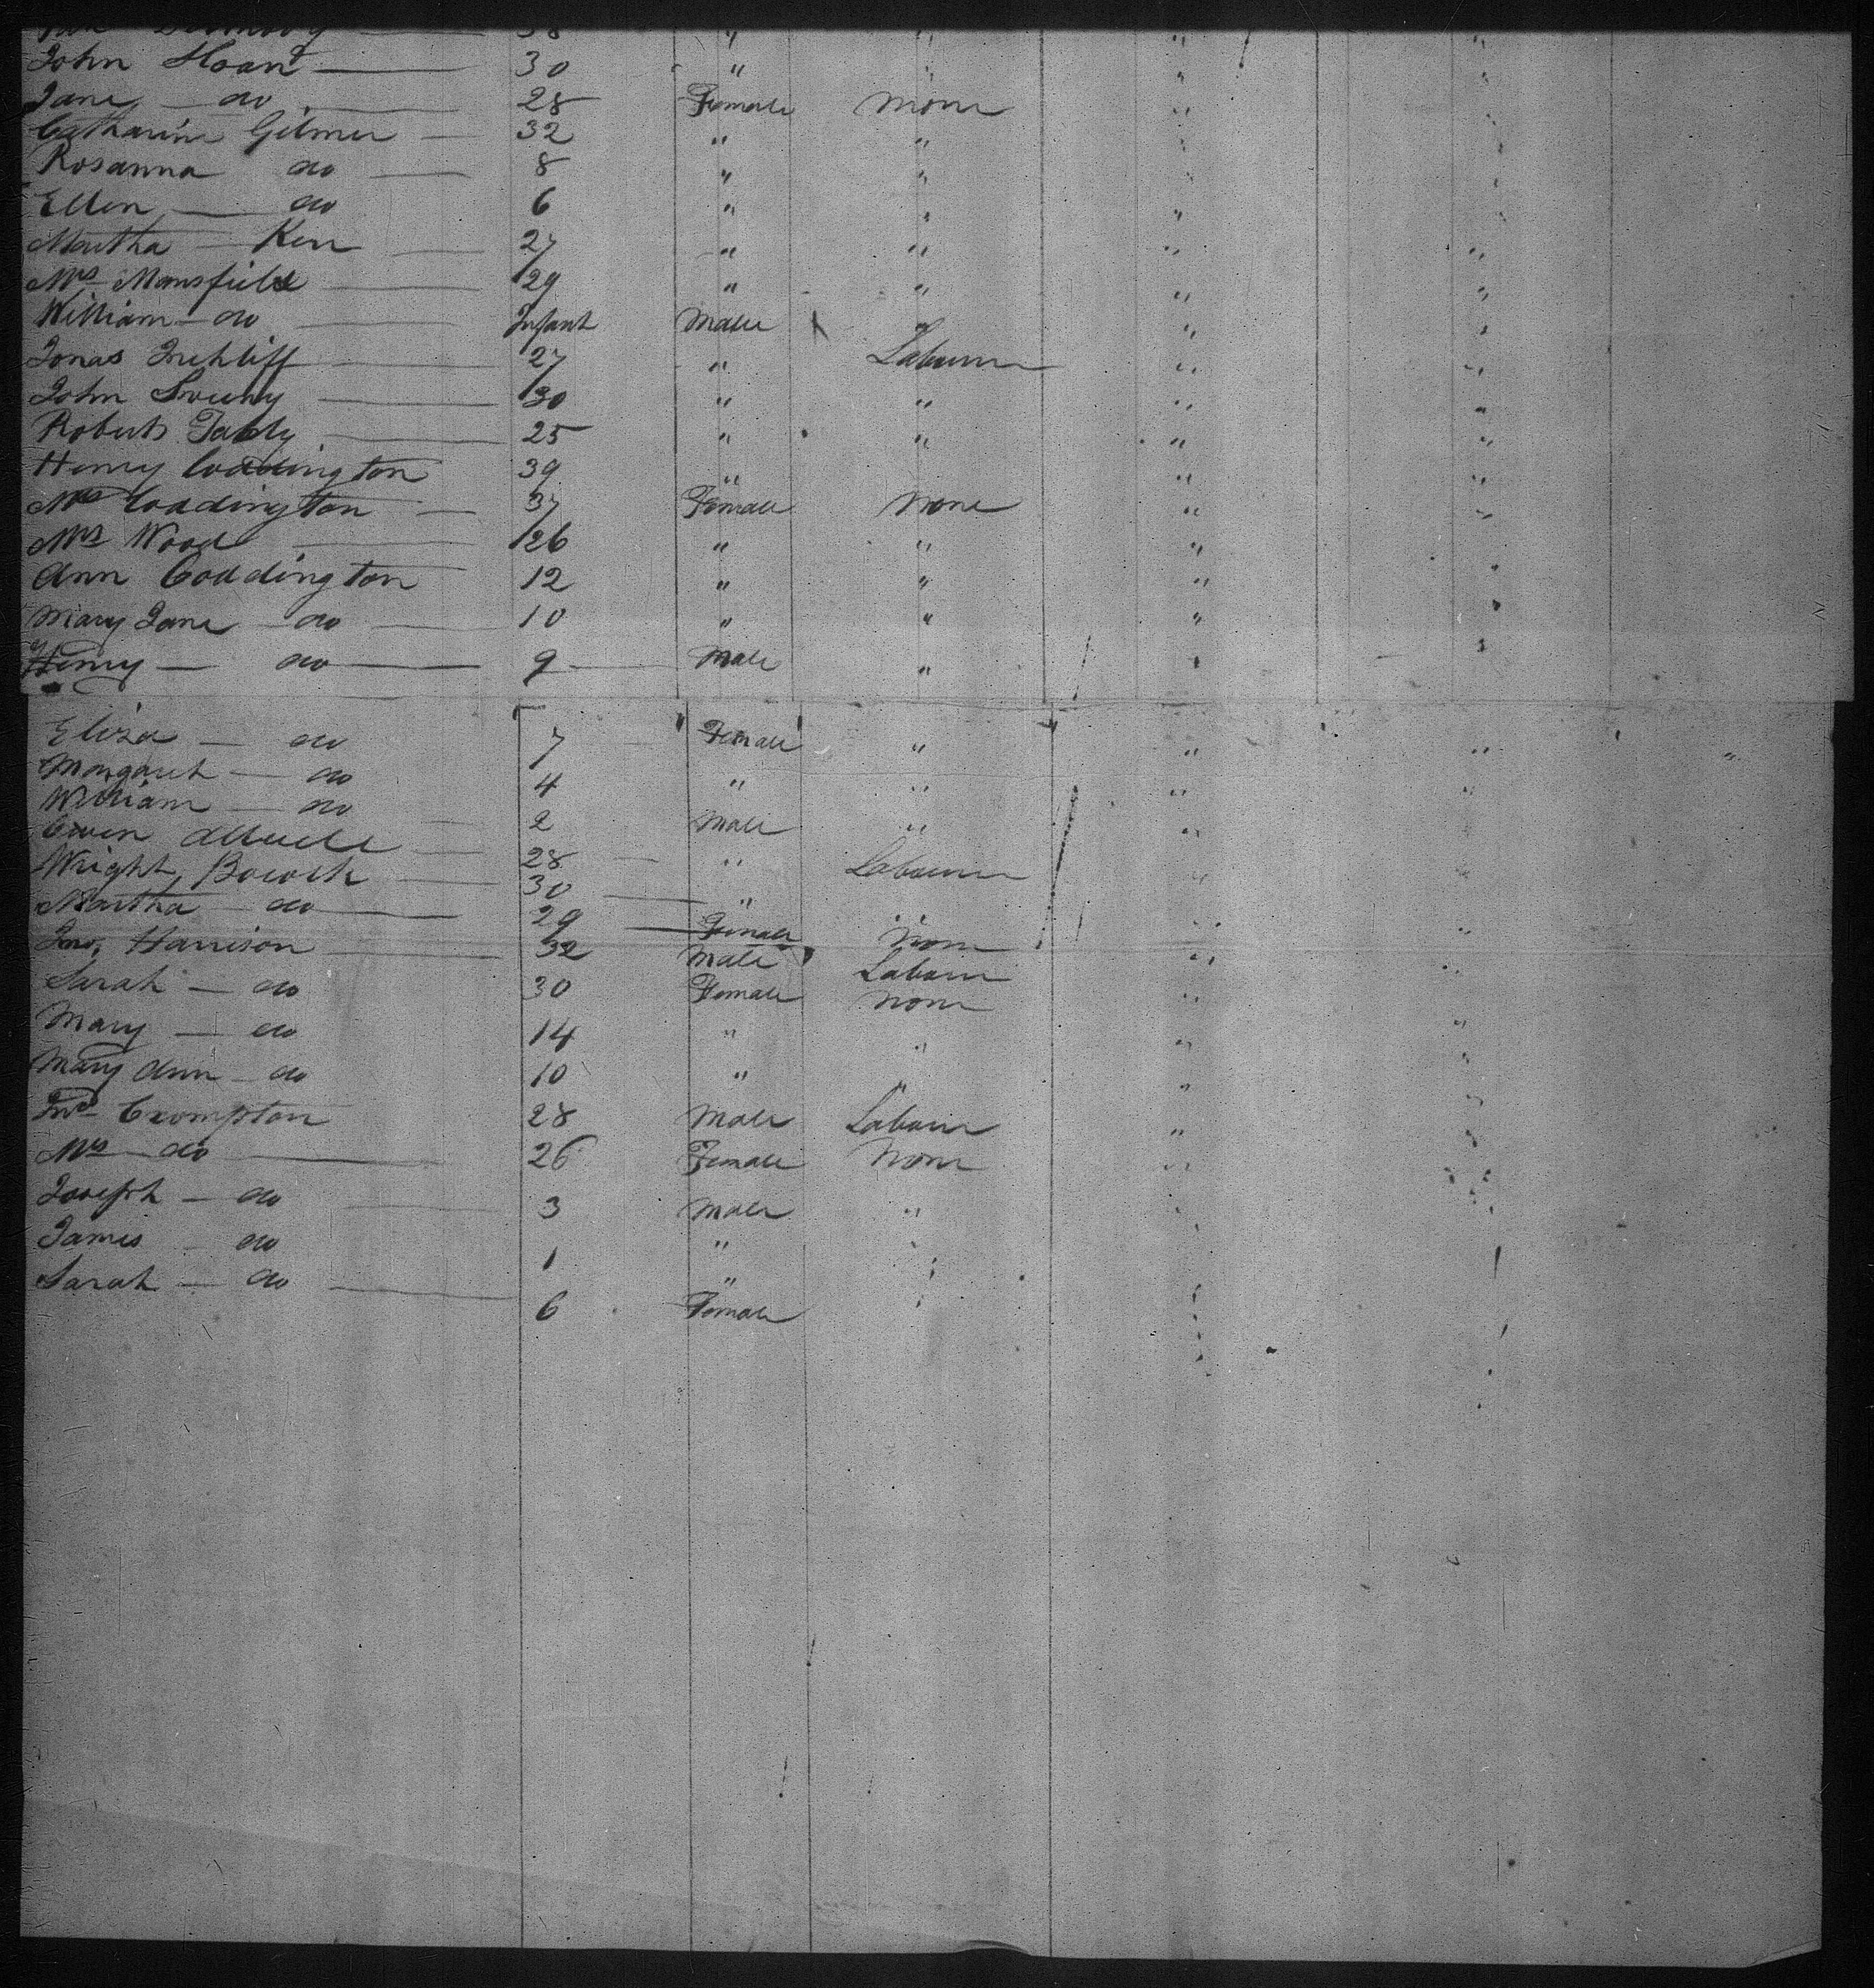 38 " " " "
John Sloan 30 " " " "
Jane do 28 Female None "
Catharine Gilmer 32 " " "
Rosanna do 8 " "
Ellen do 6 " " "
Martha Kerr 27 " " " "
Mrs Mansfield 29 " " " "
William do Infant Male " " "
Jonas 27 " Labourer " "
John 30 " " " "
Robert 25 " " " "
Henry Coddington 39 " " "
Mrs Coddington 37 Female None " "
Mrs Wood 26 " " " "
Ann Coddington 12 " " " "
Mary Jane do 10 " " " "
Henry do 9 Male " "
Eliza do 7 Female " " " "
Margaret do 4 " " " "
William do 2 Male " "
Owen 28 " Labourer "
Wright 30 "
Martha do 29 Female None " "
Jno. Harrison 32 Male Labour " "
Sarah do 30 Female None "
Mary do 14 " " " "
Mary Ann do 10 " " " "
Jno Crompton 28 Male Labour " "
Mrs do 26 Female None " "
Joseph do 3 Male "
James do 1 "
Sarah do 6 Female